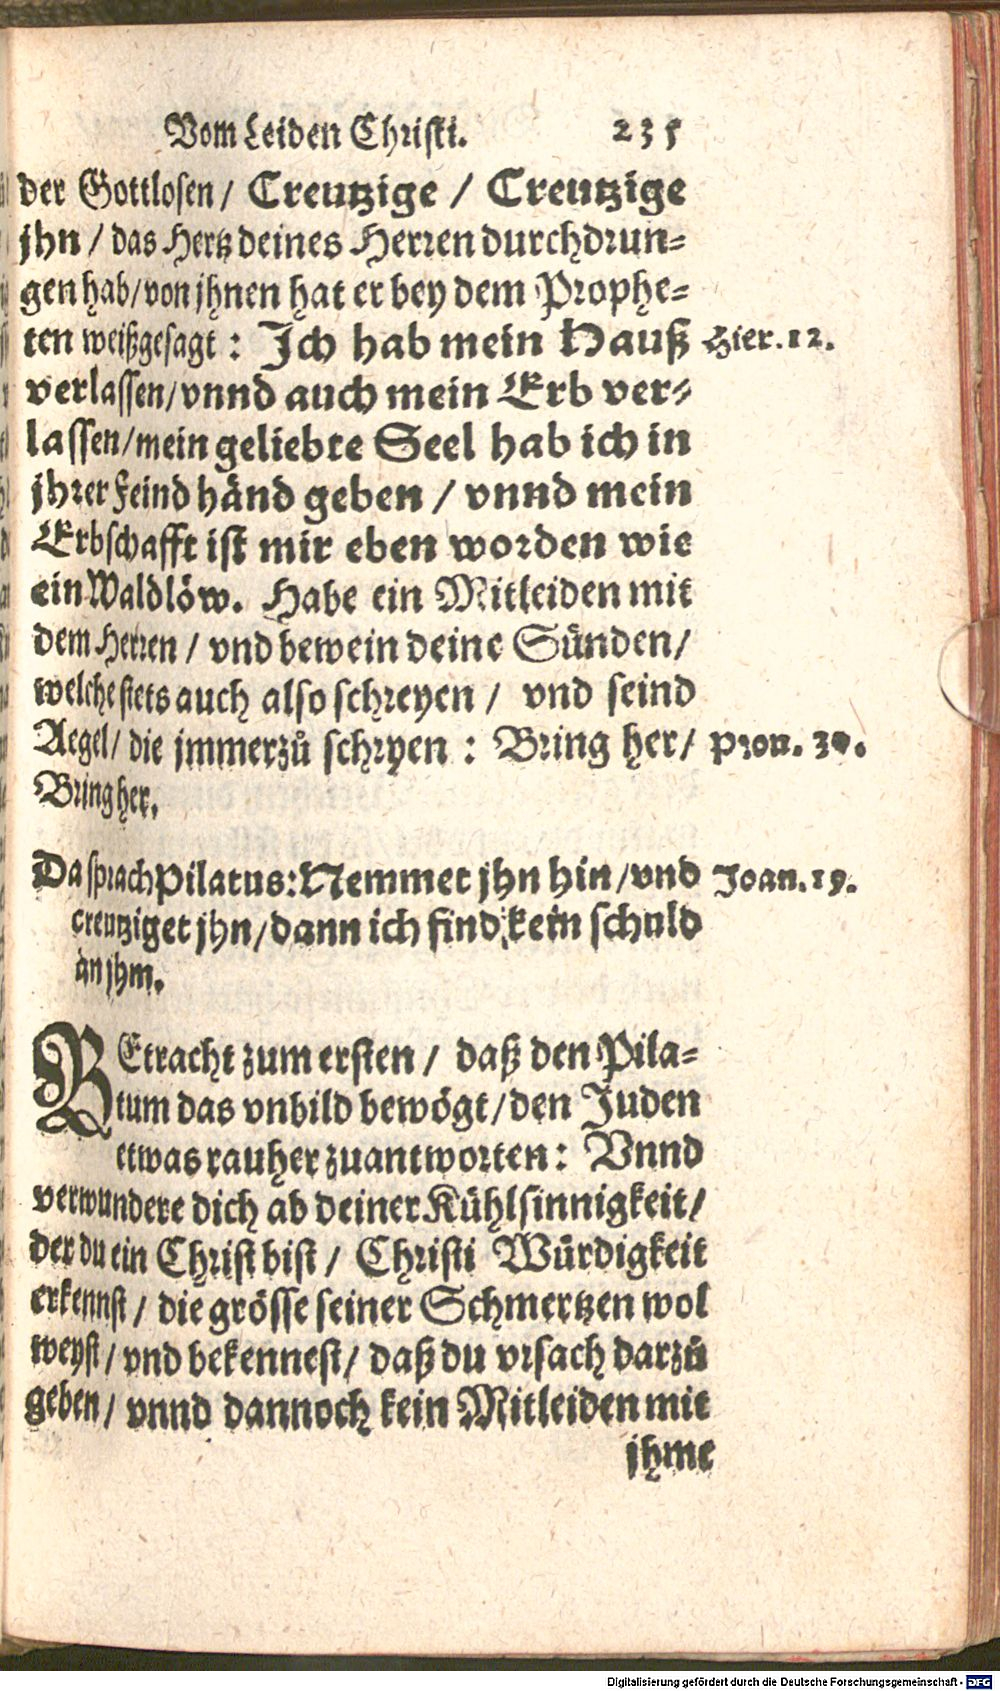 Vom Leiden Christi. 235
der Gottlosen / Creutzige / Creutzige
jhn / das Hertz deines Herren durchdrun-
gen hab / von jhnen hat er bey dem Prophe-
ten weißgesagt : Ich hab mein Hauß Hier. 12.
verlassen / vnnd auch mein Erb ver-
lassen / mein geliebte Seel hab ich in
jhrer Feind händ geben / vnnd mein
Erbschafft ist mir eben worden wie
ein Waldlöw. Habe ein Mitleiden mit
dem Herren / vnd bewein deine Sünden /
welche stets auch also schreyen / vnd seind
Aegel / die jmmerzů schryen : Bring her / Prou. 30.
Bring her.
Da sprach Pilatus: Nemmet jhn hin / vnd Joan. 19.
creutziget jhn / dann ich find kein schuld
an jhm.
BEtracht zum ersten / daß den Pila-
tum das vnbild bewögt / den Juden
etwas rauher zuantworten : Vnnd
verwundere dich ab deiner Kühlsinnigkeit /
der du ein Christ bist / Christi Würdigkeit
erkennst / die grösse seiner Schmertzen wol
weyst / vnd bekennest / daß du vrsach darzů
geben / vnnd dannoch kein Mitleiden mit
jhme
Digitalisierung gefördert durch die Deutsche Forschungsgemeinschaft - DFG